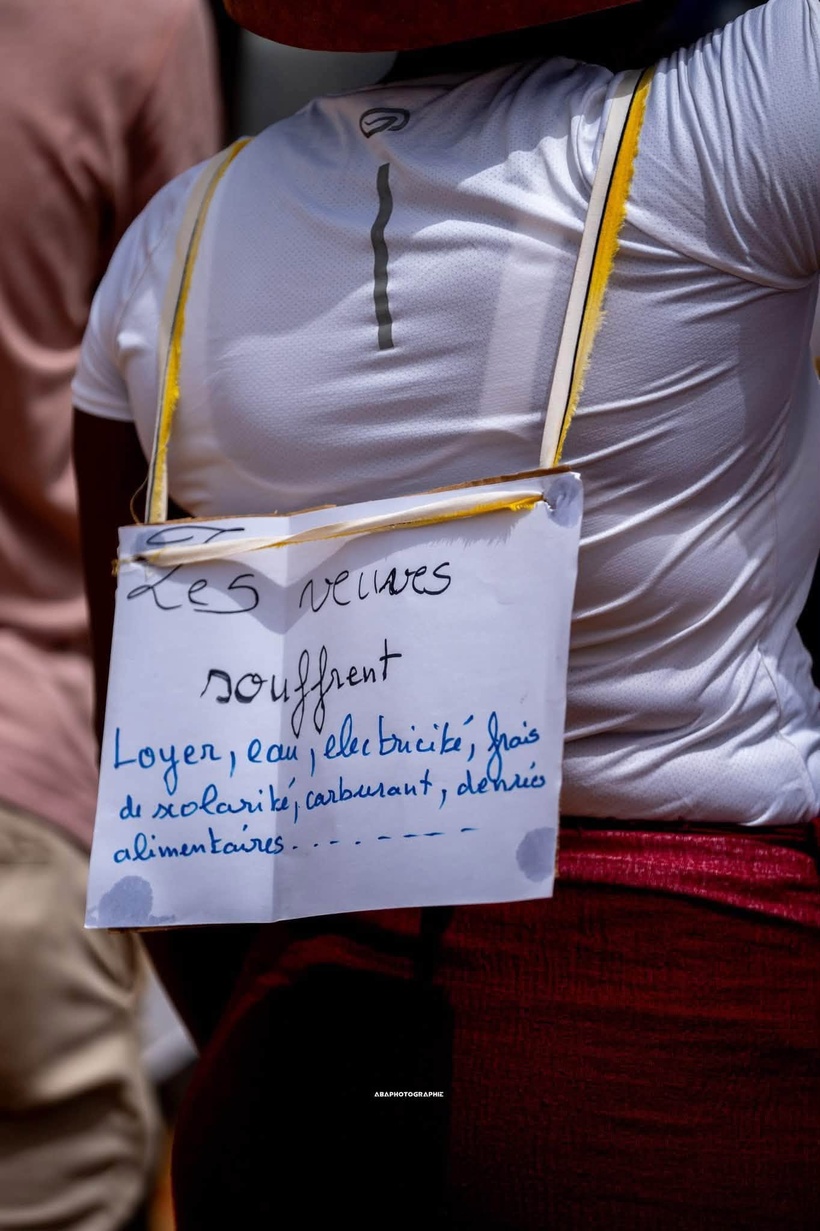 Les veuves
souffrent
Loyer, eau, electricité, frais
de scolarité, carburant, denrées
alimentaires. . . . - - - -
ABAPHOTOGRAPHIE